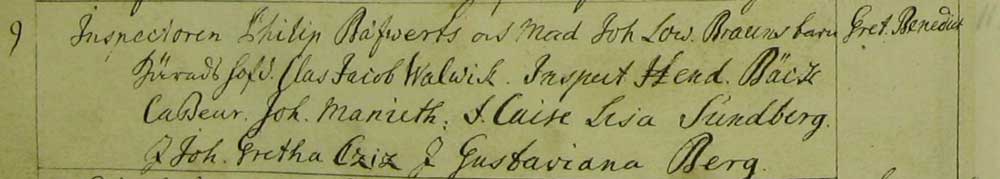 9 Inspectoren Philip Bäfwerts och Mad Joh Lov. Brauns barn Gret. Benedict
Härads höfd. Clas Jacob Walwick. Inspect Hend. Bäck
Casseur. Joh. Manieth. J. Caise Lisa Sundberg.
J Joh. Gretha J Gustaviana Berg.